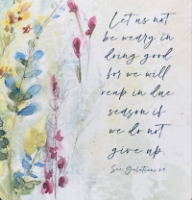 Let us not
be weary in
doing good
for we will
reap in due
season if
we do not
give up.
See Galatians 6:9